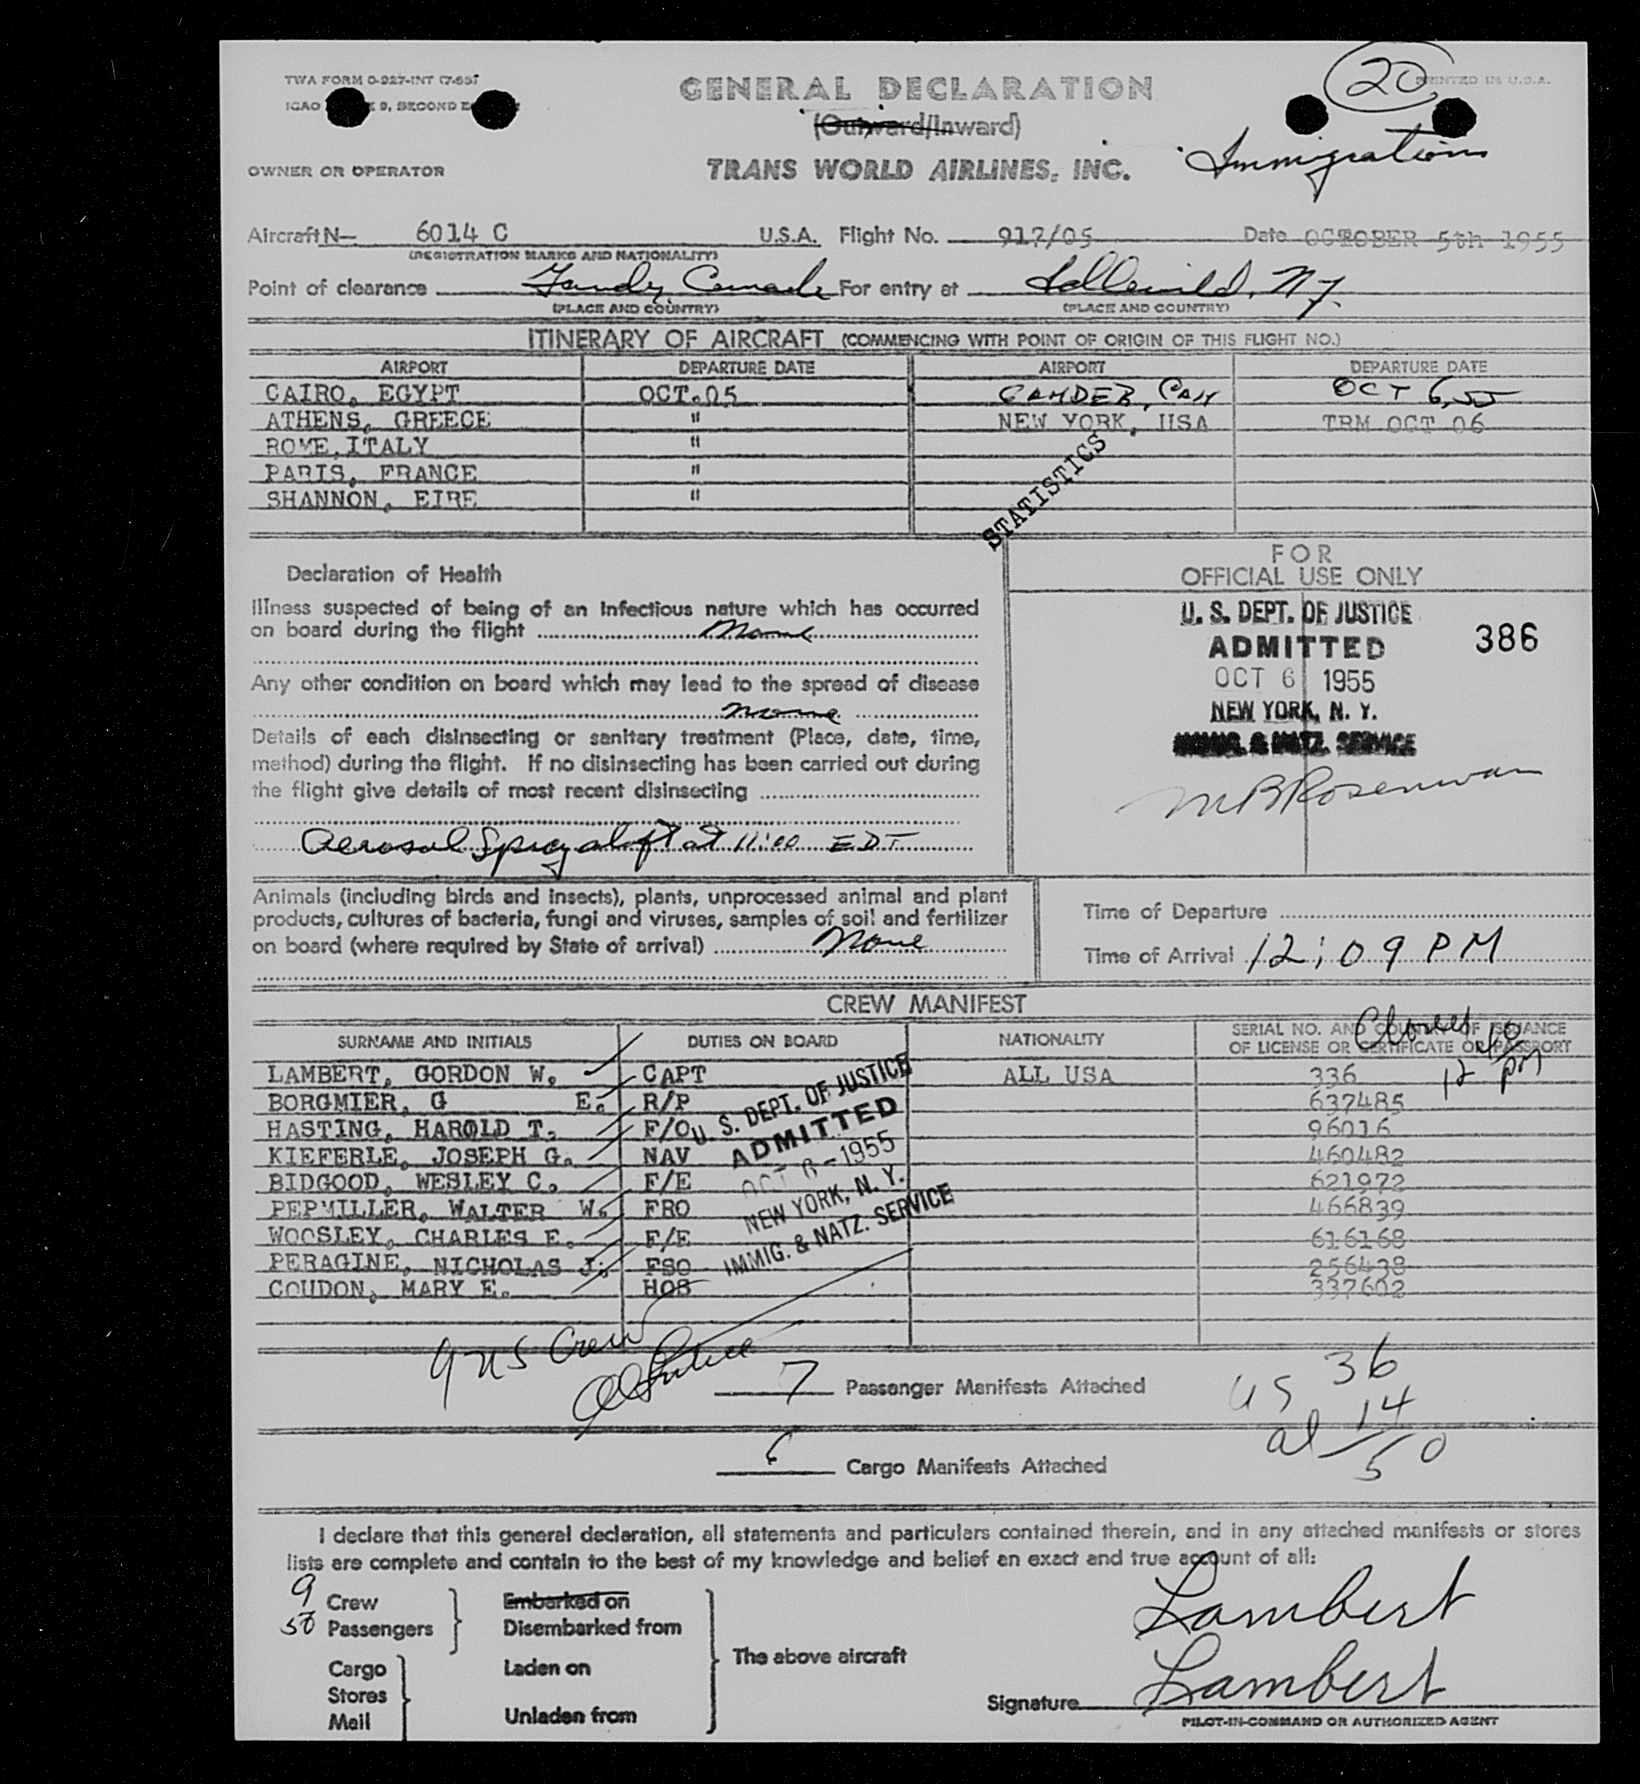 TWA FORM O-927-INT (7-55)
ICAO 9, SECOND
GENERAL DECLARATION
(Outward/Inward)
20
PRINTED IN U.S.A.
Immigration
OWNER OR OPERATOR
TRANS WORLD AIRLINES, INC.
Aircraft N- 6014 C U.S.A. Flight No. 917/05 Date OCTOBER 5th 1955
(REGISTRATION MARKS AND NATIONALITY)
Point of clearance Gander, Canada For entry at Idlewild, NY
(PLACE AND COUNTRY) (PLACE AND COUNTRY)
ITINERARY OF AIRCRAFT (COMMENCING WITH POINT OF ORIGIN OF THIS FLIGHT NO.)
AIRPORT DEPARTURE DATE AIRPORT DEPARTURE DATE
CAIRO, EGYPT OCT.05 GANDER, CAN OCT 6, 55
ATHENS, GREECE " NEW YORK, USA TRM OCT 06
ROME, ITALY "
PARIS, FRANCE "
SHANNON, EIRE "
STATISTICS
Declaration of Health
Illness suspected of being of an infectious nature which has occurred
on board during the flight None
Any other condition on board which may lead to the spread of disease
None
Details of each disinsecting or sanitary treatment (Place, date, time,
method) during the flight. If no disinsecting has been carried out during
the flight give details of most recent disinsecting
Aerosol Spray aloft at 11:00 EDT
FOR
OFFICIAL USE ONLY
U. S. DEPT. OF JUSTICE
ADMITTED 386
OCT 6 1955
NEW YORK, N. Y.
IMMIG. & NATZ. SERVICE
Animals (including birds and insects), plants, unprocessed animal and plant
products, cultures of bacteria, fungi and viruses, samples of soil and fertilizer
on board (where required by State of arrival) None
Time of Departure
Time of Arrival 12:09 PM
CREW MANIFEST
SURNAME AND INITIALS DUTIES ON BOARD NATIONALITY SERIAL NO. AND COUNTRY OF ISSUANCE
OF LICENSE OR CERTIFICATE OR PASSPORT
Closed
12 pm
LAMBERT, GORDON W. CAPT ALL USA 336
BORGMIER, G E. R/P 637485
HASTING, HAROLD T. F/O 96016
KIEFERLE, JOSEPH G. NAV 460482
BIDGOOD, WESLEY C. F/E 621972
PEPMILLER, WALTER W. FRO 466839
WOOSLEY, CHARLES E. F/E 616168
PERAGINE, NICHOLAS J. FSO 256438
COUDON, MARY E. HOS 337602
U. S. DEPT. OF JUSTICE
ADMITTED
OCT 6 - 1955
NEW YORK, N. Y.
IMMIG. & NATZ. SERVICE
9 US Crew
7 Passenger Manifests Attached
US 36
al 14
50
6 Cargo Manifests Attached
I declare that this general declaration, all statements and particulars contained therein, and in any attached manifests or stores
lists are complete and contain to the best of my knowledge and belief an exact and true account of all:
9 Crew Embarked on
50 Passengers Disembarked from
The above aircraft
Cargo Laden on
Stores
Mail Unladen from
Lambert
Signature Lambert
PILOT-IN-COMMAND OR AUTHORIZED AGENT